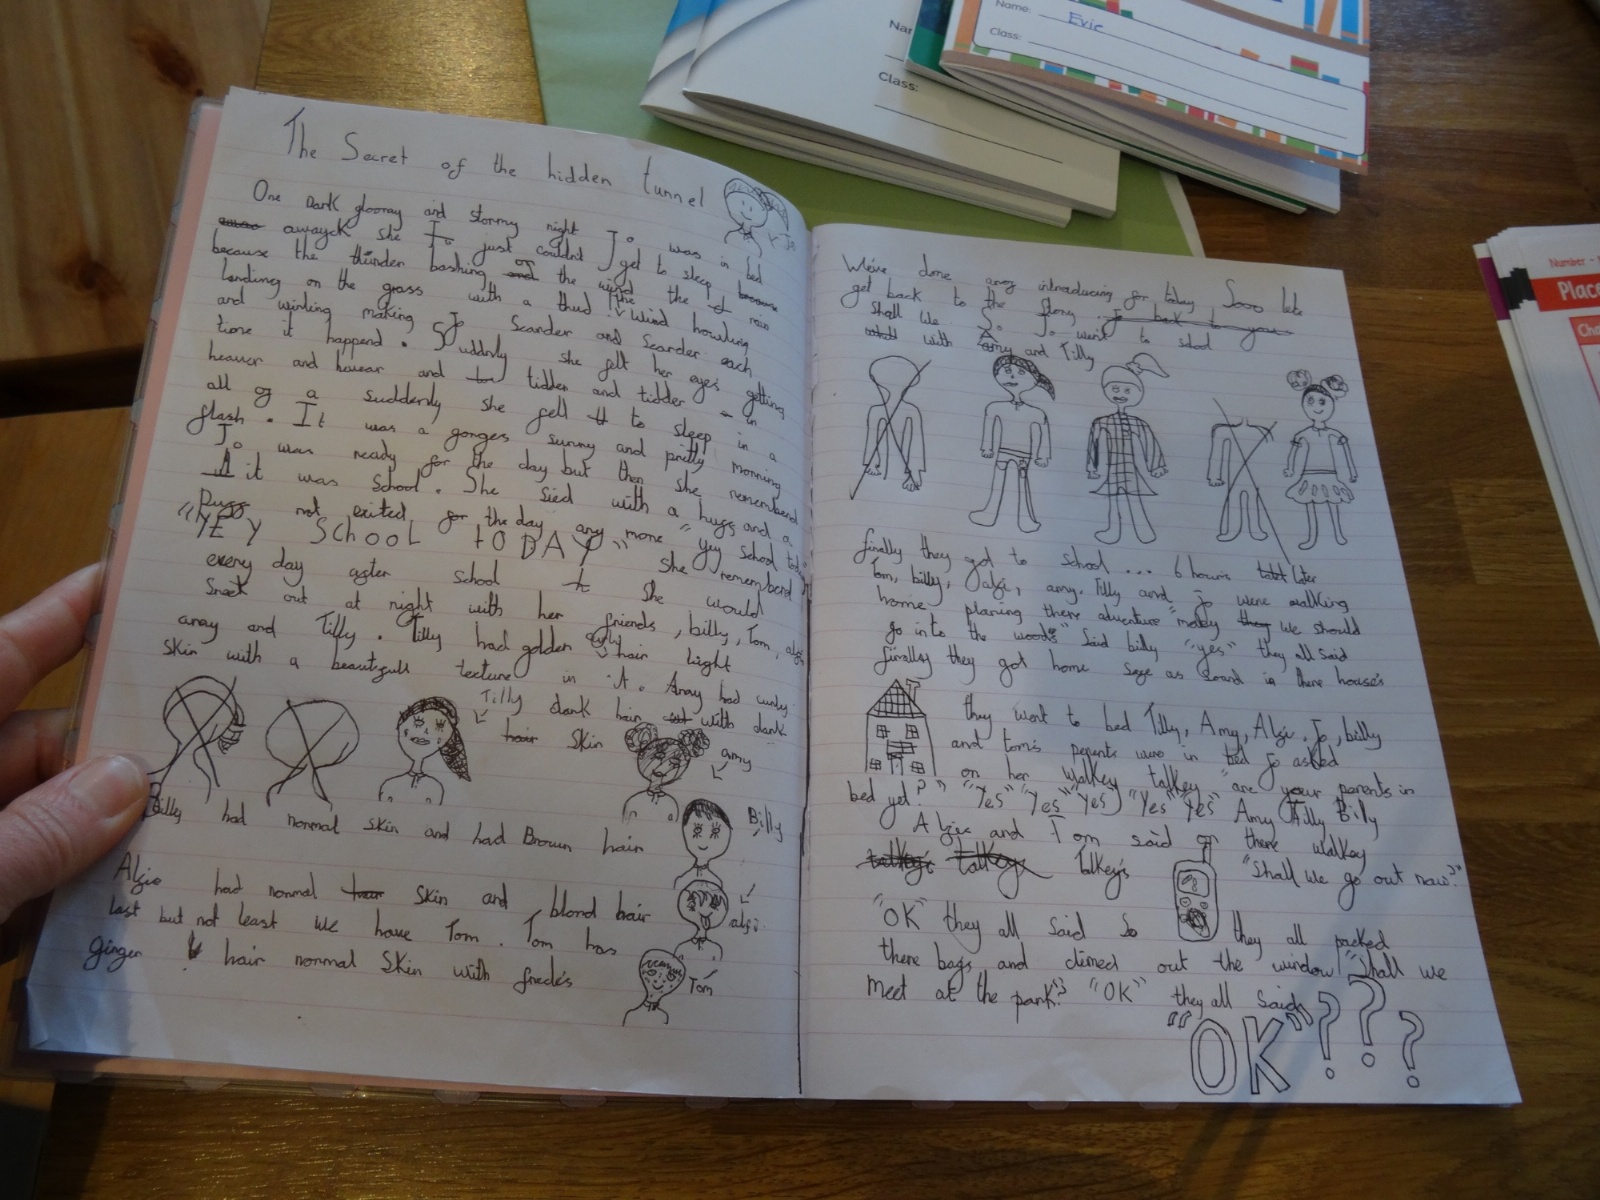 The Secret of the hidden tunnel
Jo
One Dark glooray and stormy night Jo was in bed
awayck she Jo just couldnt get to sleep! because
because the thunder bashing or and the wind the rain
landing on the grass with a thud! the wind howling
and wirling making Jo Scarder and Scarder each
time it happend. Suddnly she felt her eyes getting
heaver and heavear and tidder and tidder in
all of a suddenly she fell to sleep in a
flash. It was a gorges sunny and pritty morning
Jo was ready for the day but then she rememberd
it was School. She sied with a hugg and a
Pugg not exited for the day any more "yey school today
"YEY SCHOOL tODAY" she rememberd
every day after school she would
sneek out at night with her friends, billy, Tom, alfi
amy and Tilly. Tilly had golden curly hair light
skin with a beautifull texture in it. Amy had curly
dark hair with dark
hair skin
Tilly
amy
Billy had normal skin and had Brown hair
Billy
Alfie had normal hair skin and blond hair
alfi
last but not least we have Tom. Tom has
ginger hair normal skin with frecles
Tom
We've done any introducing for today Sooo lets
get back to the story Jo back to you
shall we So Jo went to school
with Amy and Tilly
finally they got to school... 6 hours later
Tom, billy, alfi, amy. Tilly and Jo were walking
home, planing there adventure "mabey they we should
go into the woods" Said billy "yes" they all said
finalley they got home safe as Sound in there house's
they went to bed Tilly, Amy, Alfi. Jo, billy
and tom's perents were in bed Jo asked
on her walkey talkey "are your parents in
bed yet?" "Yes" "Yes" "Yes" "Yes" "Yes" Amy Tilly Billy
Alfie and Tom said on there walkey
talkey's talkey Talkey's
"Shall we go out now?"
"OK" they all said So they all packed
there bags and climed out the window! "Shall we
meet at the park?" "OK" they all said
"OK"???
Name: Evie
Class:
Class:
Number -
Place